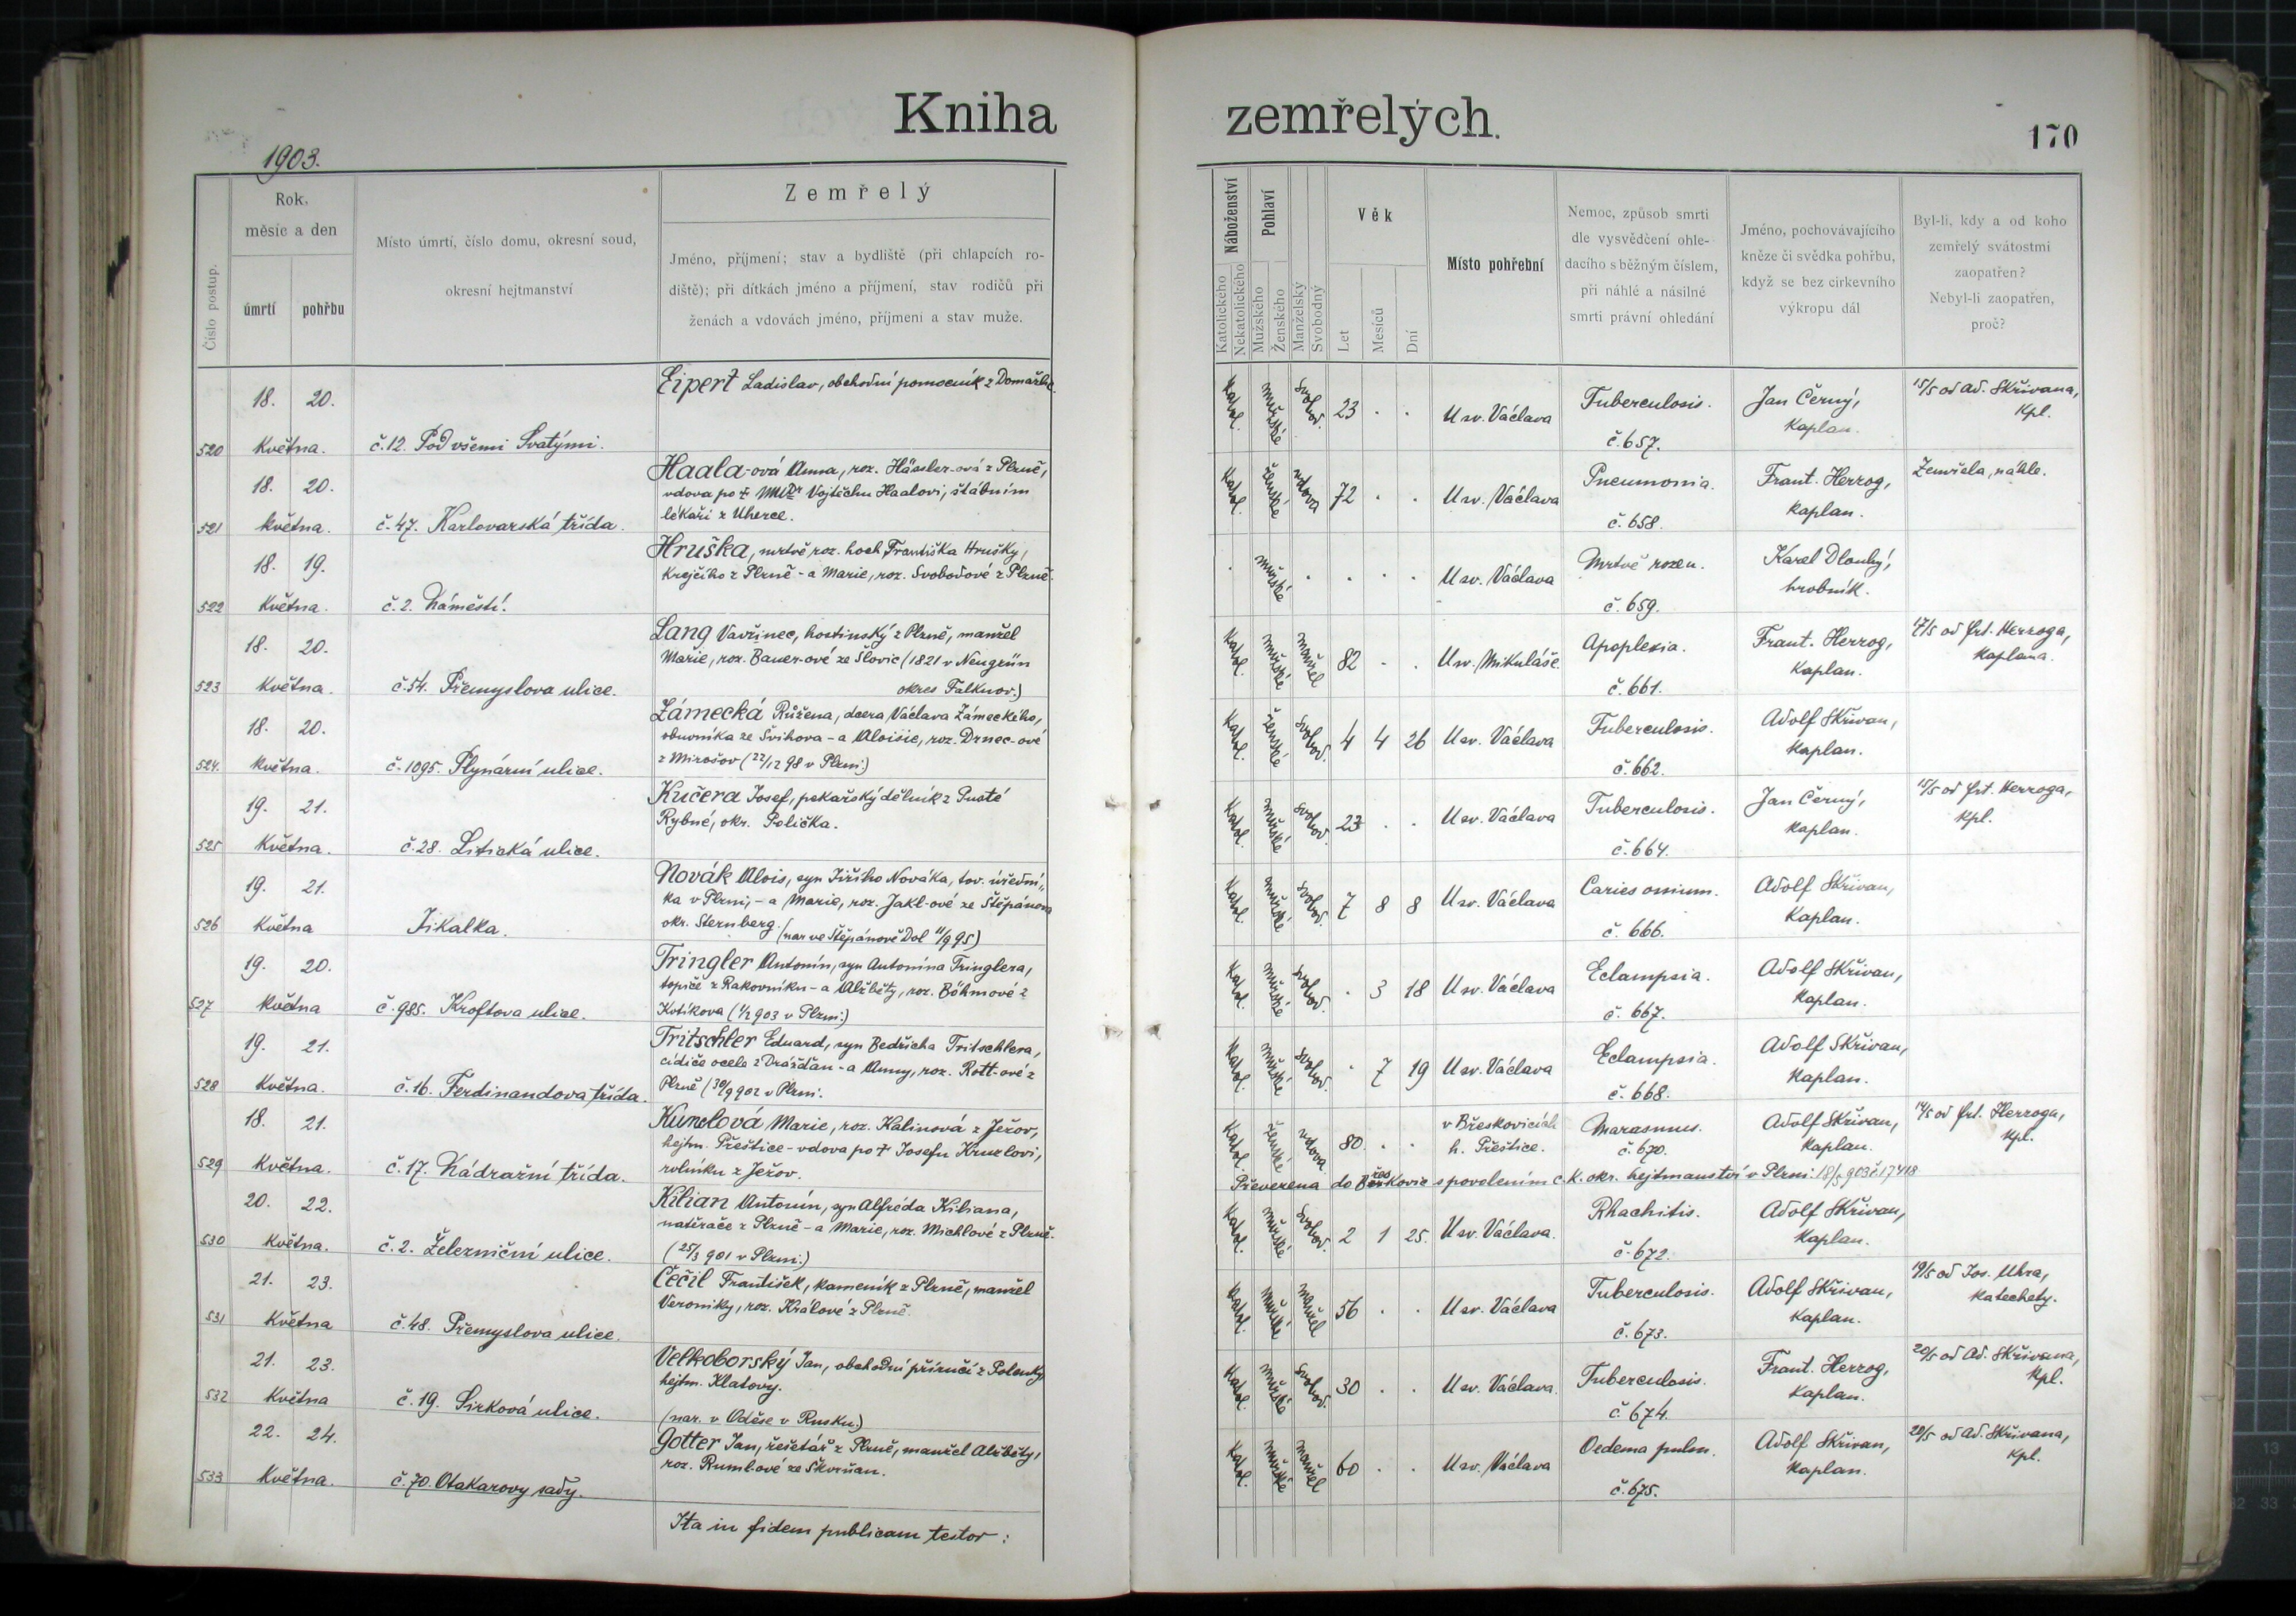 Kniha
zemřelých.
170
1903.
Číslo postup.
Rok,
měsíc a den
úmrtí
pohřbu
Místo úmrtí, číslo domu, okresní soud,
okresní hejtmanství
Zemřelý
Jméno, příjmení; stav a bydliště (při chlapcích ro-
diště); při dítkách jméno a příjmení, stav rodičů při
ženách a vdovách jméno, příjmení a stav muže.
Náboženství
Katolického
Nekatolického
Pohlaví
Mužského
Ženského
Manželský
Svobodný
Věk
Let
Mesíců
Dní
Místo pohřební
Nemoc, způsob smrti
dle vysvědčení ohle-
dacího s běžným číslem,
při náhlé a násilné
smrti právní ohledání
Jméno, pochovávajícího
kněze či svědka pohřbu,
když se bez cirkevního
výkropu dál
Byl-li, kdy a od koho
zemřelý svátostmi
zaopatřen?
Nebyl-li zaopatřen,
proč?
520
18. 20.
května.
č. 12. Pod všemi Svatými.
Eipert Ladislav, obchodní pomocník z Domažlic.
katol. mužské svobod. 23 . .
U sv. Václava
Tuberculosis.
č. 657.
Jan Černý,
kaplan.
15/5 od Ad. Skřivana,
kpl.
521
18. 20.
května.
č. 47. Karlovarská třída.
Haala-ová Anna, roz. Hässler-ová z Plzně,
vdova po † MUDr Vojtěchu Haalovi, štábním
lékaři z Uherce.
katol. ženské vdova 72 . .
U sv. Václava
Pneumonia.
č. 658.
Frant. Herzog,
kaplan.
Zemřela náhle.
522
18. 19.
května.
č. 2. Náměstí.
Hruška, mrtvě roz. hoch Františka Hrušky,
krejčího z Plzně - a Marie, roz. Svobodové z Plzně.
. mužské . . . .
U sv. Václava
Mrtvě rozen.
č. 659.
Karel Dlouhý,
hrobník.
523
18. 20.
května.
č. 54. Přemyslova ulice.
Lang Vavřinec, hostinský z Plzně, manžel
Marie, roz. Bauer-ové ze Slovic (1821 v Neugrün
okres Falknov.)
katol. mužské manžel 82 . .
U sv. Mikuláše
Apoplexia.
č. 661.
Frant. Herzog,
kaplan.
17/5 od Frt. Herzoga,
kaplana.
524.
18. 20.
května.
č. 1095. Plynární ulice.
Zámecká Růžena, dcera Václava Zámeckého,
obuvníka ze Švihova - a Aloisie, roz. Drnec-ové
z Mirošov (22/12 98 v Plzni.)
katol. ženské svobod. 4 4 26
U sv. Václava
Tuberculosis.
č. 662.
Adolf Skřivan,
kaplan.
525
19. 21.
května.
č. 28. Litická ulice.
Kučera Josef, pekařský dělník z Pusté
Rybné, okr. Polička.
katol. mužské svobod. 23 . .
U sv. Václava
Tuberculosis.
č. 664.
Jan Černý,
kaplan.
15/5 od Frt. Herzoga,
kpl.
526
19. 21.
května
Jikalka.
Novák Alois, syn Jiřího Nováka, tov. úřední-
ka v Plzni, - a Marie, roz. Jakl-ové ze Štěpánova
okr. Sternberg. (nar ve Štěpánově Dol 11/9 95)
katol. mužské svobod. 7 8 8
U sv. Václava
Caries ossium.
č. 666.
Adolf Skřivan,
kaplan.
527
19. 20.
května
č. 985. Kroftova ulice.
Tringler Antonín, syn Antonína Tringlera,
topiče z Rakovníku - a Alžběty, roz. Böhmové z
Kotíkova (1/2 903 v Plzni.)
katol. mužské svobod. . 3 18
U sv. Václava
Eclampsia.
č. 667.
Adolf Skřivan,
kaplan.
528
19. 21.
května.
č. 16. Ferdinandova třída.
Fritschler Eduard, syn Bedřicha Fritschlera,
cídiče ocele z Drážďan - a Anny, roz. Rott-ové z
Plzně (30/9 902 v Plzni.
katol. mužské svobod. . 7 19
U sv. Václava
Eclampsia.
č. 668.
Adolf Skřivan,
kaplan.
529
18. 21.
května.
č. 17. Nádražní třída.
Kunclová Marie, roz. Kalinová z Ježov,
hejtm. Přeštice - vdova po † Josefu Kunclovi,
rolníku z Ježov.
katol. ženské vdova 80 . .
v Břeskovicích
h. Přeštice.
Marasmus.
č. 670.
Adolf Skřivan,
kaplan.
14/5 od Frt. Herzoga,
kpl.
Převezena do Břeskovic s povolením c. k. okr. hejtmanství v Plzni 18/5 903 č. 17418
530
20. 22.
května.
č. 2. Železniční ulice.
Kilian Antonín, syn Alfréda Kiliana,
natěrače z Plzně - a Marie, roz. Michlové z Plzně.
(25/3 901 v Plzni.)
katol. mužské svobod. 2 1 25.
U sv. Václava.
Rhachitis.
č. 672.
Adolf Skřivan,
kaplan.
531
21. 23.
května
č. 48. Přemyslova ulice.
Čečil František, kameník z Plzně, manžel
Veroniky, roz. Králové z Plzně.
katol. mužské manžel 56 . .
U sv. Václava
Tuberculosis.
č. 673.
Adolf Skřivan,
kaplan.
19/5 od Jos. Uhra,
katechety.
532
21. 23.
května
č. 19. Sirková ulice.
Velkoborský Jan, obchodní příručí z Polenky,
hejtm. Klatovy.
(nar. v Oděse v Rusku.)
katol. mužské svobod. 30 . .
U sv. Václava.
Tuberculosis.
č. 674.
Frant. Herzog,
kaplan.
20/5 od Ad. Skřivana,
kpl.
533
22. 24.
května.
č. 70. Otakarovy sady.
Gotter Jan, řešetář z Plzně, manžel Alžběty,
roz. Ruml-ové ze Skvrňan.
katol. mužské manžel 60 . .
U sv. Václava
Oedema pulm.
č. 675.
Adolf Skřivan,
kaplan.
20/5 od Ad. Skřivana,
kpl.
Ita in fidem publicam testor: